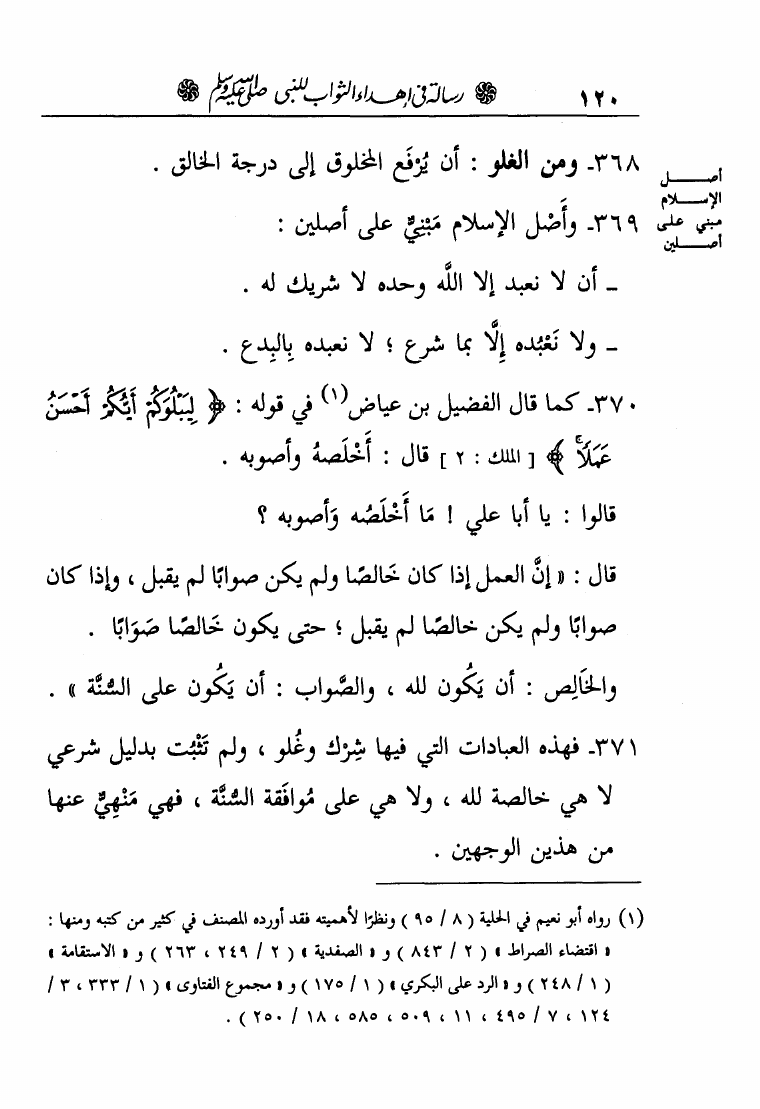 ١٢٠ ❁ رسالة في إهداء الثواب للنبي صلى الله عليه وسلم ❁
أصل
الإسلام
مبني على
أصلين
٣٦٨ـ ومن الغلو : أن يُرْفَع المخلوق إلى درجة الخالق .
٣٦٩ـ وأَصْل الإسلام مَبْنِيٌّ على أصلين :
ـ أن لا نعبد إلا اللَّه وحده لا شريك له .
ـ ولا نَعْبُده إِلَّا بما شرع ؛ لا نعبده بِالبِدع .
٣٧٠ـ كما قال الفضيل بن عياض(١) في قوله : ﴿ لِيَبْلُوَكُمْ أَيُّكُمْ أَحْسَنُ
عَمَلًاۚ ﴾ [ الملك : ٢ ] قال : أَخْلَصهُ وأصوبه .
قالوا : يا أبا علي ! مَا أَخْلَصُه وَأصوبه ؟
قال : « إنَّ العمل إذا كان خَالصًا ولم يكن صوابًا لم يقبل ، وإذا كان
صوابًا ولم يكن خالصًا لم يقبل ؛ حتى يكون خَالصًا صَوَابًا .
والخَالِص : أن يَكُون لله ، والصَّواب : أن يَكُون على السُّنَّة » .
٣٧١ـ فهذه العبادات التي فيها شِرْك وغُلو ، ولم تَثْبُت بدليل شرعي
لا هي خالصة لله ، ولا هي على مُوافَقة السُّنَّة ، فهي مَنْهِيٌّ عنها
من هذين الوجهين .
(١) رواه أبو نعيم في الحلية ( ٨ / ٩٥ ) ونظرًا لأهميته فقد أورده المصنف في كثير من كتبه ومنها :
« اقتضاء الصراط » ( ٢ / ٨٤٣ ) و « الصفدية » ( ٢ / ٢٤٩ ، ٢٦٣ ) و « الاستقامة »
( ١ / ٢٤٨ ) و « الرد على البكري » ( ١ / ١٧٥ ) و « مجموع الفتاوى » ( ١ / ٣٣٣ ، ٣ /
١٢٤ ، ٧ / ٤٩٥ ، ١١ ، ٥٠٩ ، ٥٨٥ ، ١٨ / ٢٥٠ ) .